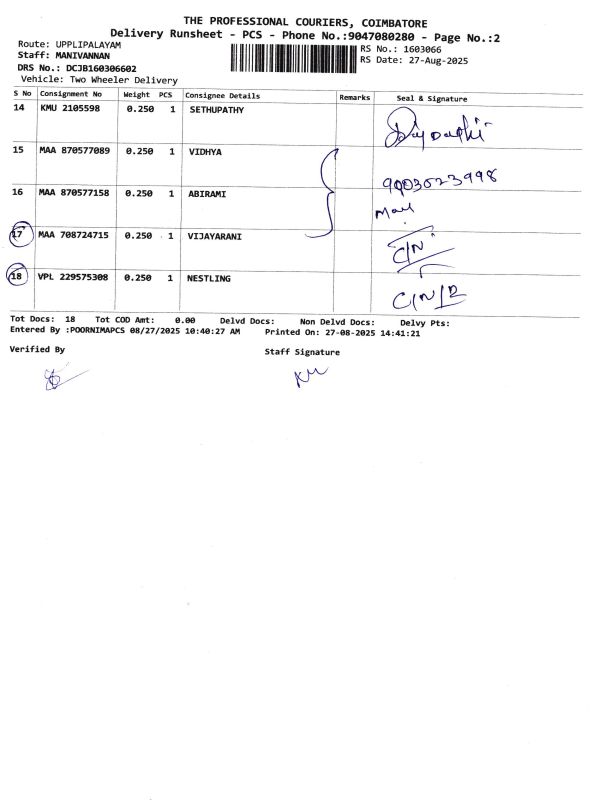 THE PROFESSIONAL COURIERS, COIMBATORE
Delivery Runsheet - PCS - Phone No.:9047080280 - Page No.:2
Route: UPPLIPALAYAM
RS No.: 1603066
Staff: MANIVANNAN
RS Date: 27-Aug-2025
DRS No.: DCJB160306602
Vehicle: Two Wheeler Delivery
S No Consignment No Weight PCS Consignee Details Remarks Seal & Signature
14 KMU 2105598 0.250 1 SETHUPATHY
15 MAA 870577089 0.250 1 VIDHYA
9003023998
16 MAA 870577158 0.250 1 ABIRAMI
17 MAA 708724715 0.250 1 VIJAYARANI C/N
18 VPL 229575308 0.250 1 NESTLING C/N/R
Tot Docs: 18 Tot COD Amt: 0.00 Delvd Docs: Non Delvd Docs: Delvy Pts:
Entered By :POORNIMAPCS 08/27/2025 10:40:27 AM Printed On: 27-08-2025 14:41:21
Verified By Staff Signature